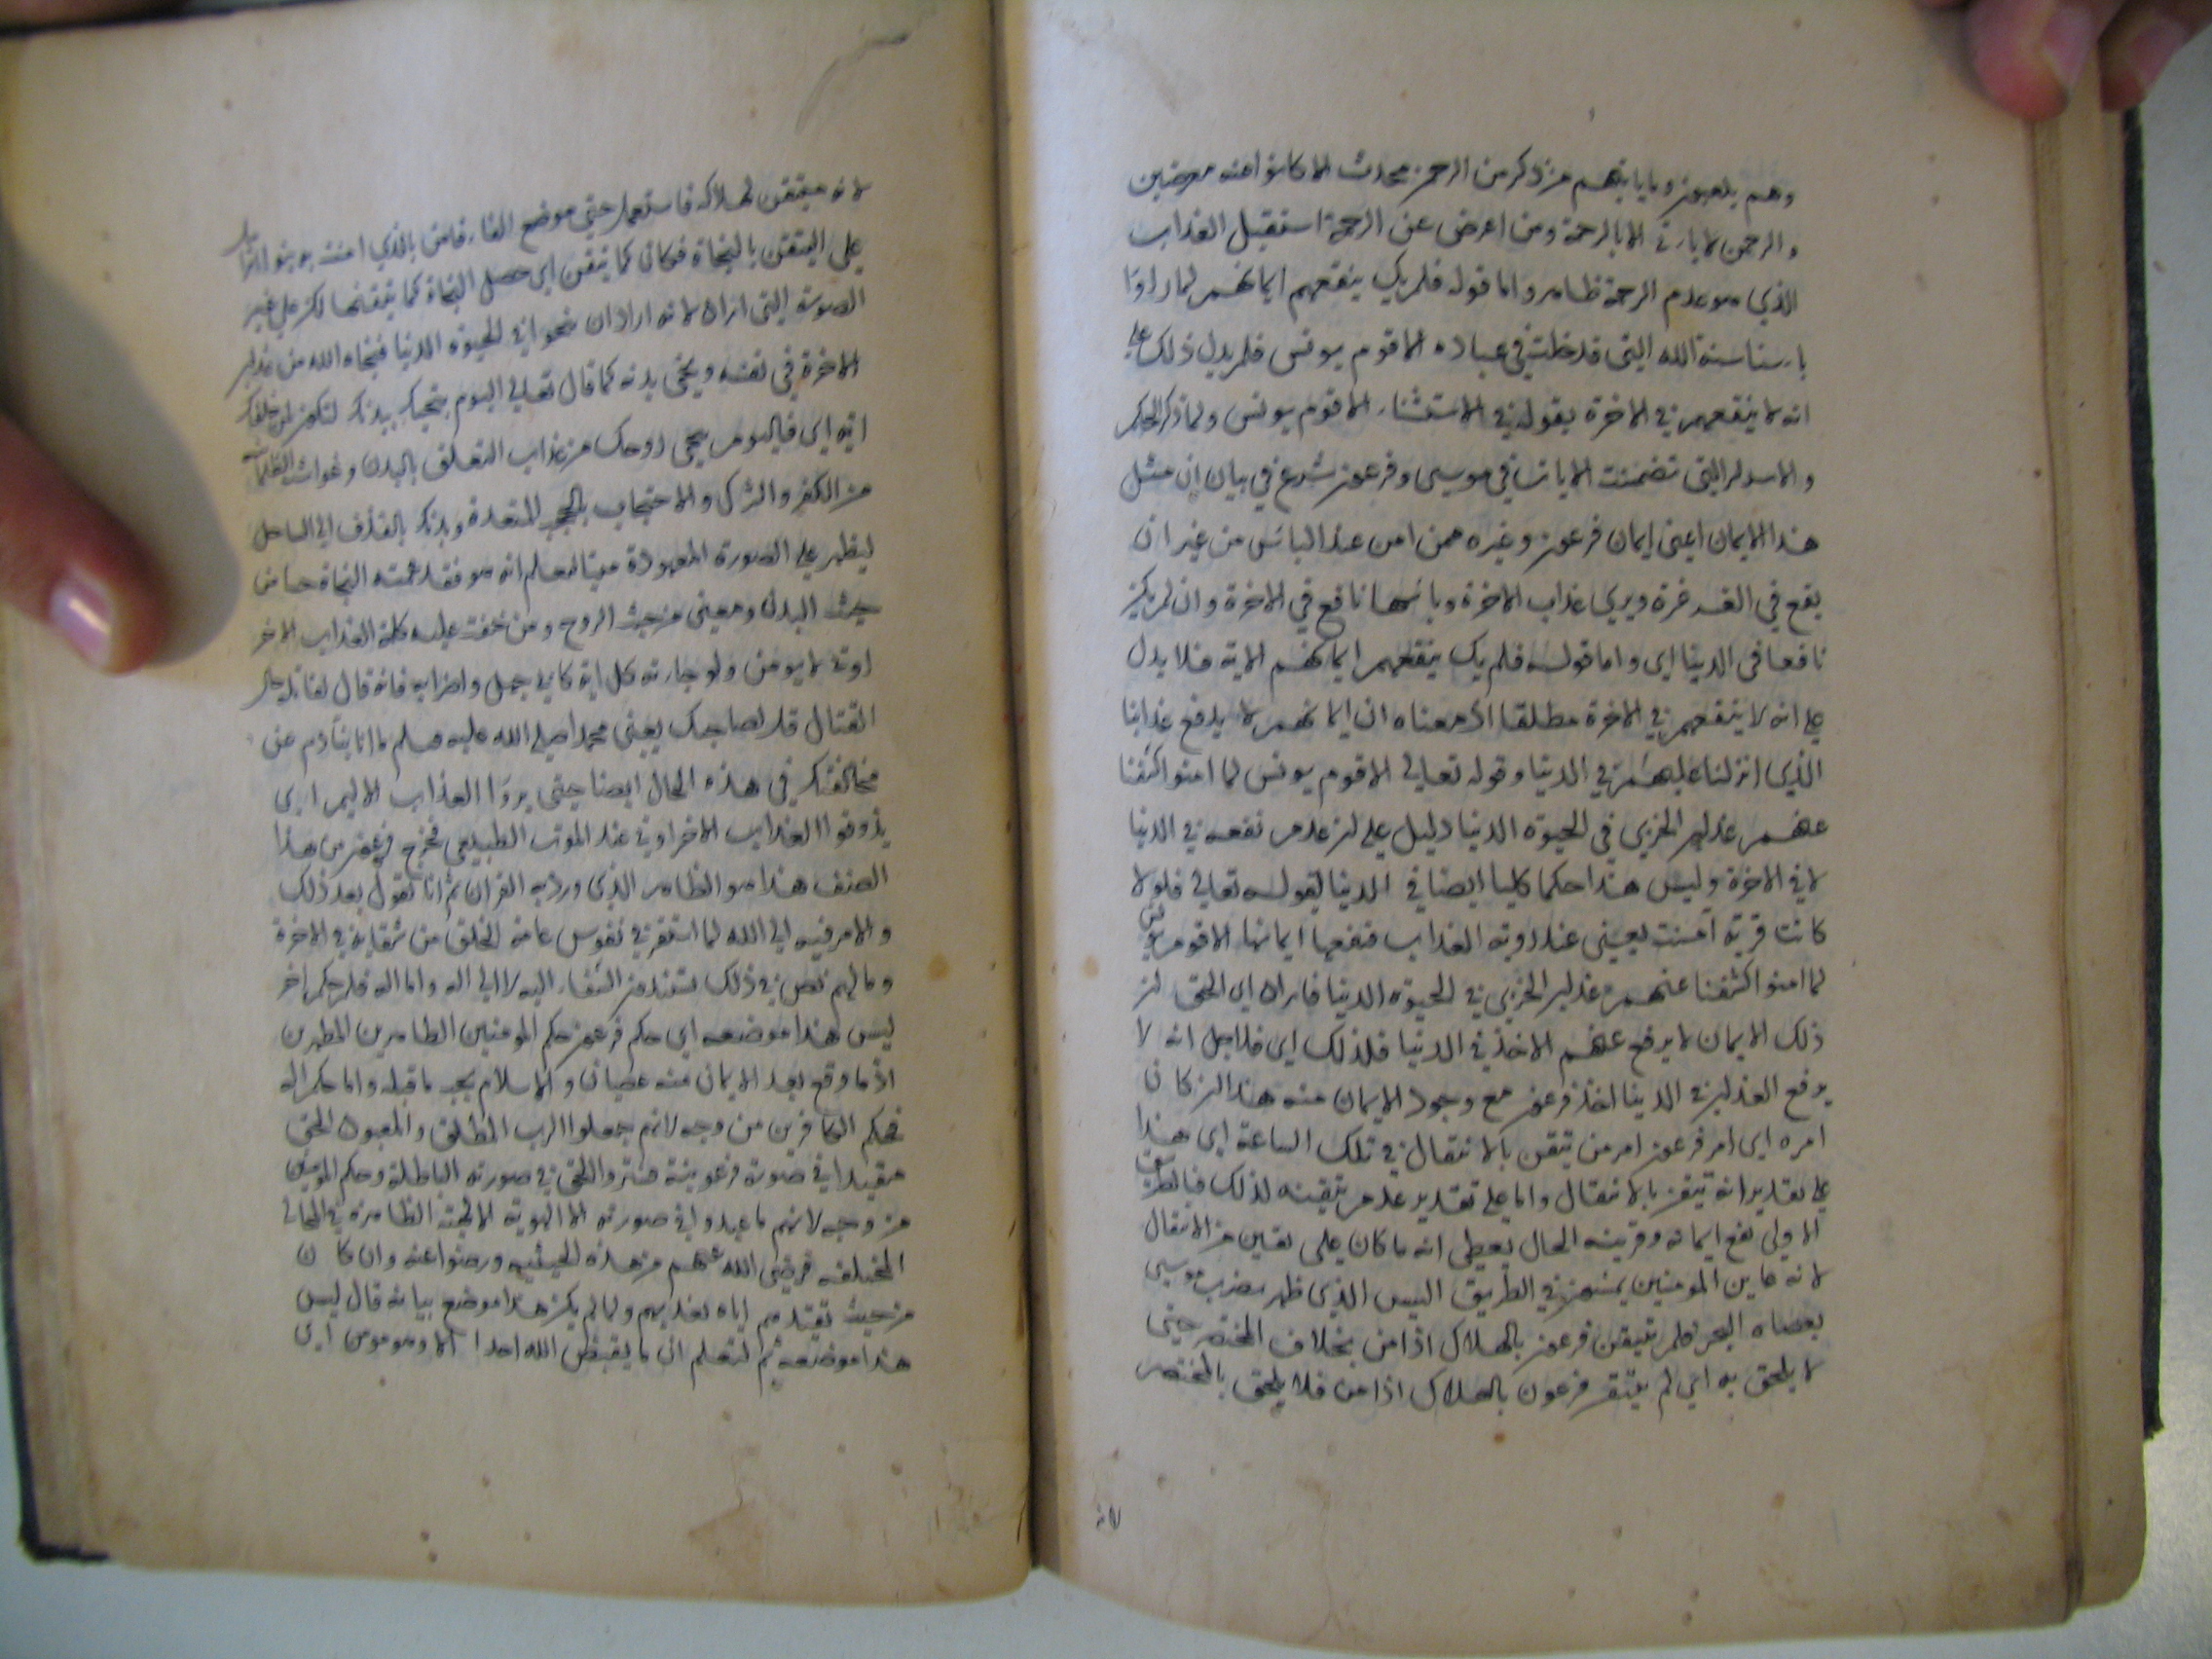 وهم يلعبون وما ياتيهم من ذكر من الرحمن محدث الا كانوا عنه معرضين
والرحمن لا ياتي الا بالرحمة ومن اعرض عن الرحمة استقبل العذاب
الذي هو عدم الرحمة ظاهر واما قوله فلم يك ينفعهم ايمانهم لما راوا
باسنا سنة الله التي قد خلت في عباده الا قوم يونس فلم يدل ذلك على
انه لا ينفعهم في الاخرة بقوله في الاستثناء الا قوم يونس ولما ذكر الحكم
والاسرار التي تضمنت الايات في موسى وفرعون شرع في بيان ان مثل
هذا الايمان اعني ايمان فرعون وغيره ممن امن عند الباس من غير ان
يقع في الغرغرة ويرى عذاب الاخرة وباسها نافع في الاخرة وان لم يكن
نافعا في الدنيا اي واما قوله فلم يك ينفعهم ايمانهم الاية فلا يدل
على انه لا ينفعهم في الاخرة مطلقا اذ معناه ان ايمانهم لا يدفع عذابنا
الذي انزلنا عليهم في الدنيا وقوله تعالى الا قوم يونس لما امنوا كشفنا
عنهم عذاب الخزي في الحيوة الدنيا دليل على ان عدم نفعه في الدنيا
لا في الاخرة وليس هذا حكما كليا ايضا في الدنيا لقوله تعالى فلولا
كانت قرية آمنت يعني عند روية العذاب فنفعها ايمانها الا قوم يونس
لما امنوا كشفنا عنهم عذاب الخزي في الحيوة الدنيا فاراد اي الحق ان
ذلك الايمان لا يرفع عنهم الاخذ في الدنيا فلذلك اي فلاجل انه لا
يرفع العذاب في الدنيا اخذ فرعون مع وجود الايمان منه هذا ان كان
امره اي امر فرعون امر من تيقن بالانتقال في تلك الساعة اي هذا
على تقدير انه تيقن بالانتقال واما على تقدير عدم تيقنه لذلك فبالطريق
الاولى نفع ايمانه وقرينة الحال يعطي انه ما كان على يقين من الانتقال
لانه عاين المومنين يمشون في الطريق اليبس الذي ظهر بضرب موسى
بعصاه البحر فلم يتيقن فرعون بالهلاك اذا من بخلاف المحتضر حتى
لا يلحق به اي لم يتيقن فرعون بالهلاك اذا من فلا يلحق بالمحتضر
لانه متيقن لهلاكه فاستعمل حتى موضع الفاء فامن بالذي امنت به بنوا اسرائيل
على التيقن بالنجاة فكان كما تيقن اي حصل النجاة كما تيقنها لكن على غير
الصورة التي اراد لانه اراد ان ينجو في الحيوة الدنيا فنجاه الله من عذاب
الاخرة في نفسه ونجى بدنه كما قال تعالى اليوم ننجيك ببدنك لتكون لمن خلفك
اية اي فاليوم ننجى روحك من عذاب التعلق بالبدن وغواشي الظلمات
من الكفر والشرك والاحتجاب بالحجب المتعددة وبدنك بالقذف الى الساحل
ليظهر على الصورة المعهودة ميتا ليعلم انه هو فقد عمته النجاة حسا من
حيث البدن ومعنى من حيث الروح ومن حقت عليه كلمة العذاب الاخر
اوي لا يومن ولو جاءته كل اية كابي جهل واضرابه فانه قال لقاتله حال
القتال قل لصاحبك يعني محمدا صلى الله عليه وسلم ما انا بنادم عن
مخالفتك في هذه الحال ايضا حتى يروا العذاب الاليم اي
يذوقوا العذاب الاخراوي عند الموت الطبيعي فخرج فرعون من هذا
الصنف هذا هو الظاهر الذي ورد به القران ثم انا نقول بعد ذلك
والامر فيه الى الله لما استقر في نفوس عامة الخلق من شقايه في الاخرة
وما لهم نص في ذلك يستند من الشقاء اليه لا الى اله واما اله فلهم حكم اخر
ليس هذا موضعه اي حكم فرعون حكم المومنين الطاهرين المطهرين
اذ ما وقع بعد الايمان منه عصيان والاسلام يجب ما قبله واما حكم اله
فحكم الكافرين من وجه لانهم جعلوا الرب المطلق والمعبود الحق
مقيدا في صورة فرعونية فستروا الحق في صورته الباطلة وحكم المومنين
من وجه لانهم ما عبدوا في صورته الا الهوية الالهية الظاهرة في المجالي
المختلفة فرضي الله عنهم من هذه الحيثية ورضوا عنه وان كان
من حيث تقيدهم اياه تعذيبهم ولما لم يكن هذا موضع بيانه قال ليس
هذا موضعه ثم لتعلم انه ما يقبض الله احدا الا وهو مومن اي